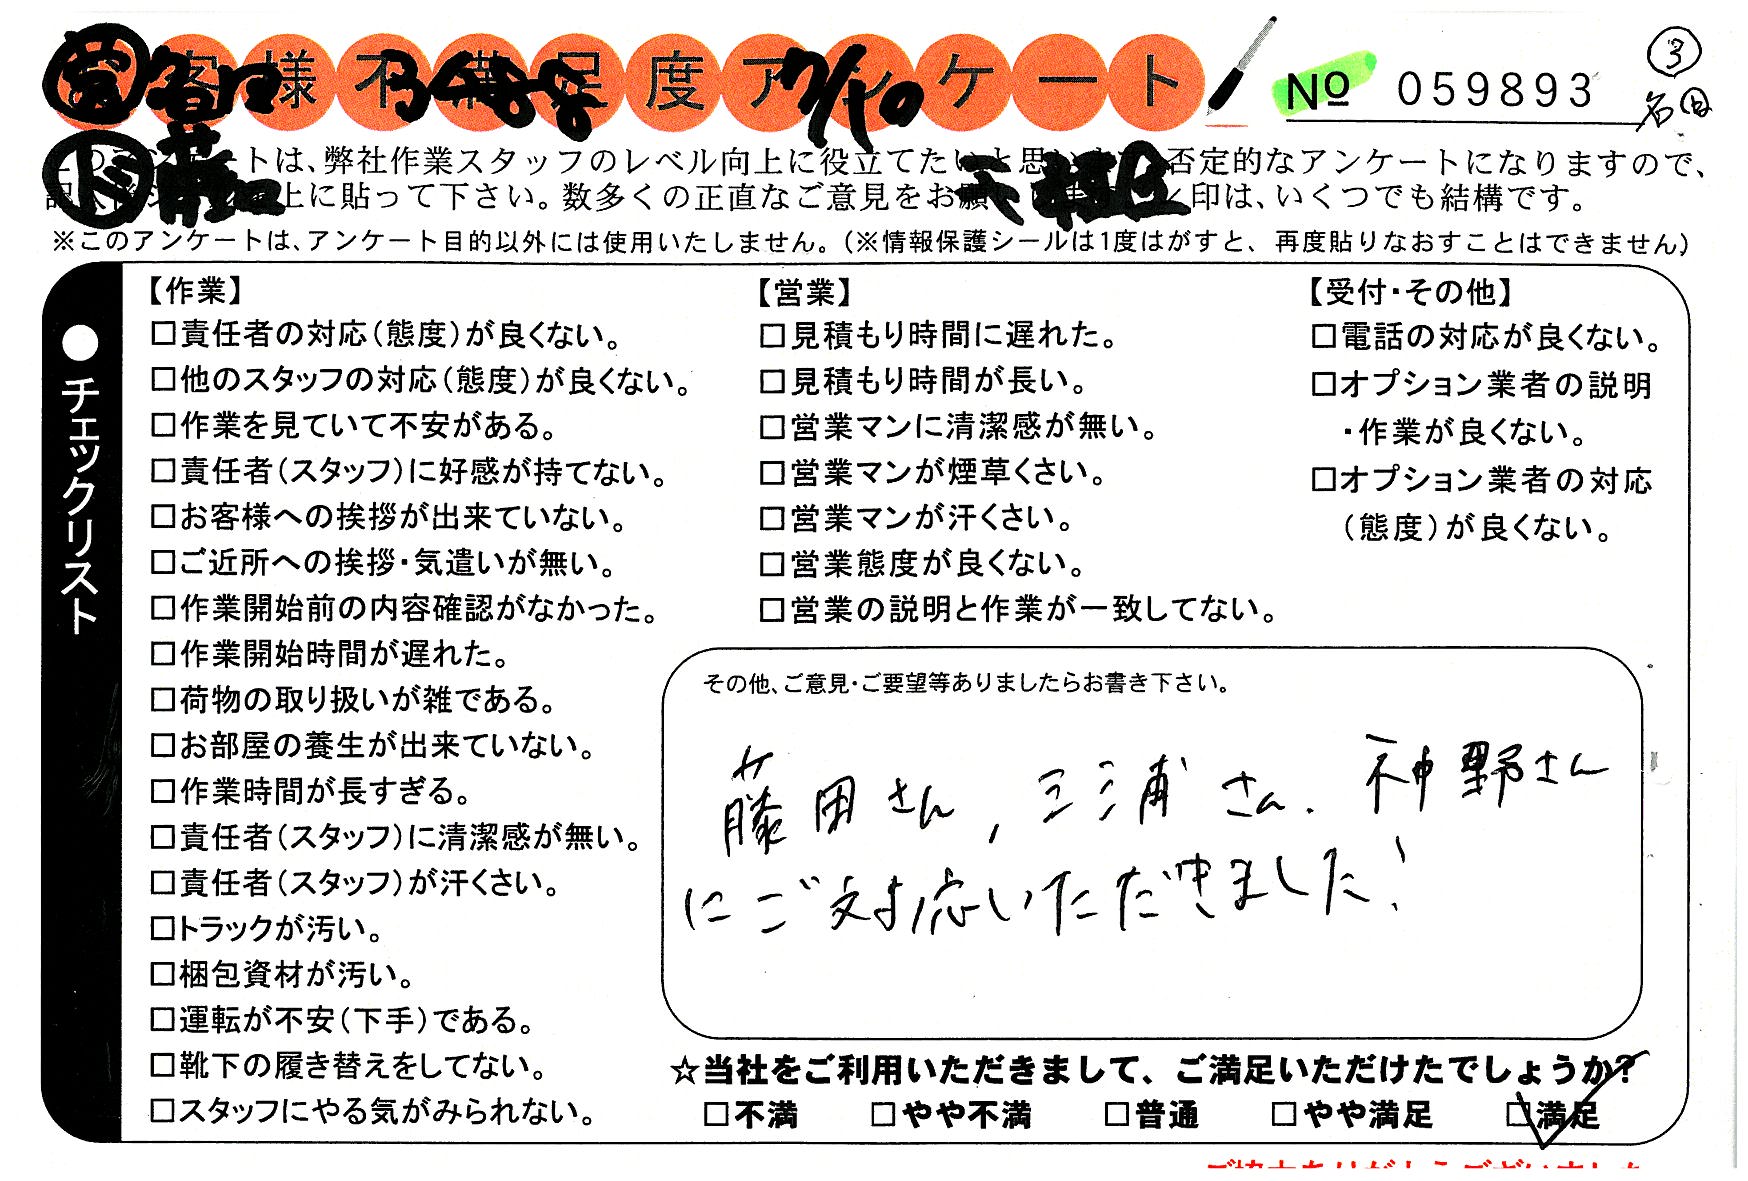 お客様不満足度アンケート
No 059893
③
名古
営
7/10
ト
このアンケートは、弊社作業スタッフのレベル向上に役立てたいと思います。否定的なアンケートになりますので、
上に貼って下さい。数多くの正直なご意見をお願い 印は、いくつでも結構です。
※このアンケートは、アンケート目的以外には使用いたしません。(※情報保護シールは1度はがすと、再度貼りなおすことはできません)
●チェックリスト
【作業】
□責任者の対応(態度)が良くない。
□他のスタッフの対応(態度)が良くない。
□作業を見ていて不安がある。
□責任者(スタッフ)に好感が持てない。
□お客様への挨拶が出来ていない。
□ご近所への挨拶・気遣いが無い。
□作業開始前の内容確認がなかった。
□作業開始時間が遅れた。
□荷物の取り扱いが雑である。
□お部屋の養生が出来ていない。
□作業時間が長すぎる。
□責任者(スタッフ)に清潔感が無い。
□責任者(スタッフ)が汗くさい。
□トラックが汚い。
□梱包資材が汚い。
□運転が不安(下手)である。
□靴下の履き替えをしてない。
□スタッフにやる気がみられない。
【営業】
□見積もり時間に遅れた。
□見積もり時間が長い。
□営業マンに清潔感が無い。
□営業マンが煙草くさい。
□営業マンが汗くさい。
□営業態度が良くない。
□営業の説明と作業が一致してない。
【受付・その他】
□電話の対応が良くない。
□オプション業者の説明
・作業が良くない。
□オプション業者の対応
(態度)が良くない。
その他、ご意見・ご要望等ありましたらお書き下さい。
藤田さん,三浦さん.神野さん
にご対応いただきました!
☆当社をご利用いただきまして、ご満足いただけたでしょうか?
□不満 □やや不満 □普通 □やや満足 ☑満足
ご協力ありがとうございました